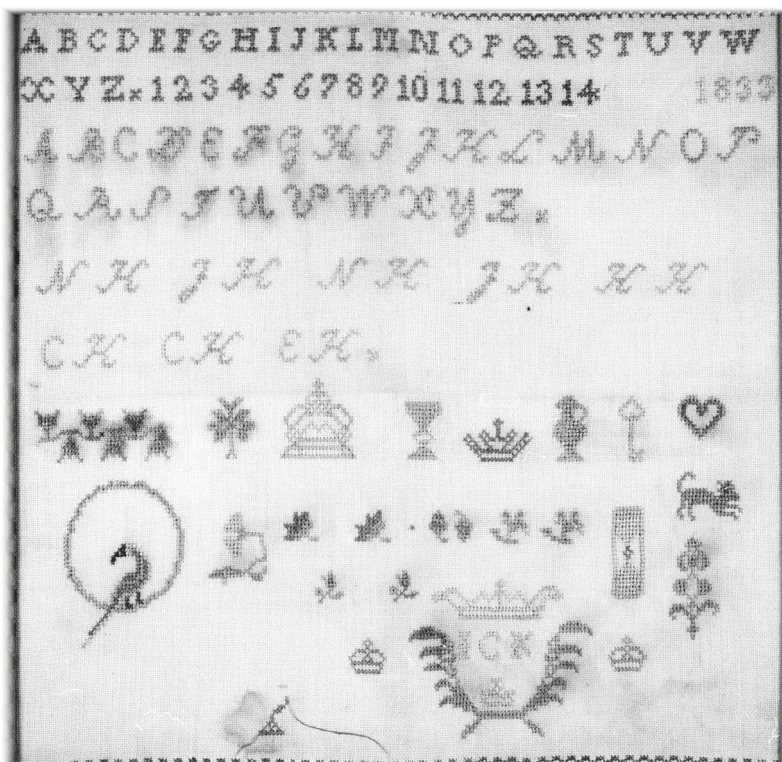 A B C D E F G H I J K L M N O P Q R S T U V W
X Y Z x 1 2 3 4 5 6 7 8 9 10 11 12 13 14 1833
A B C D E F G H I J K L M N O P
Q R S T U V W X Y Z x
N K J K N K J K K K
C K C K E K x
I C K